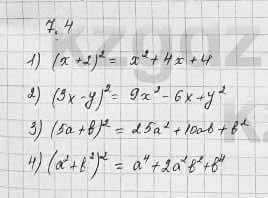 7.4
1) (x+2)² = x²+4x+4
2) (3x-y)² = 9x²-6x+y²
3) (5a+b)² = 25a²+10ab+b²
4) (a²+b²)² = a⁴+2a²b²+b⁴